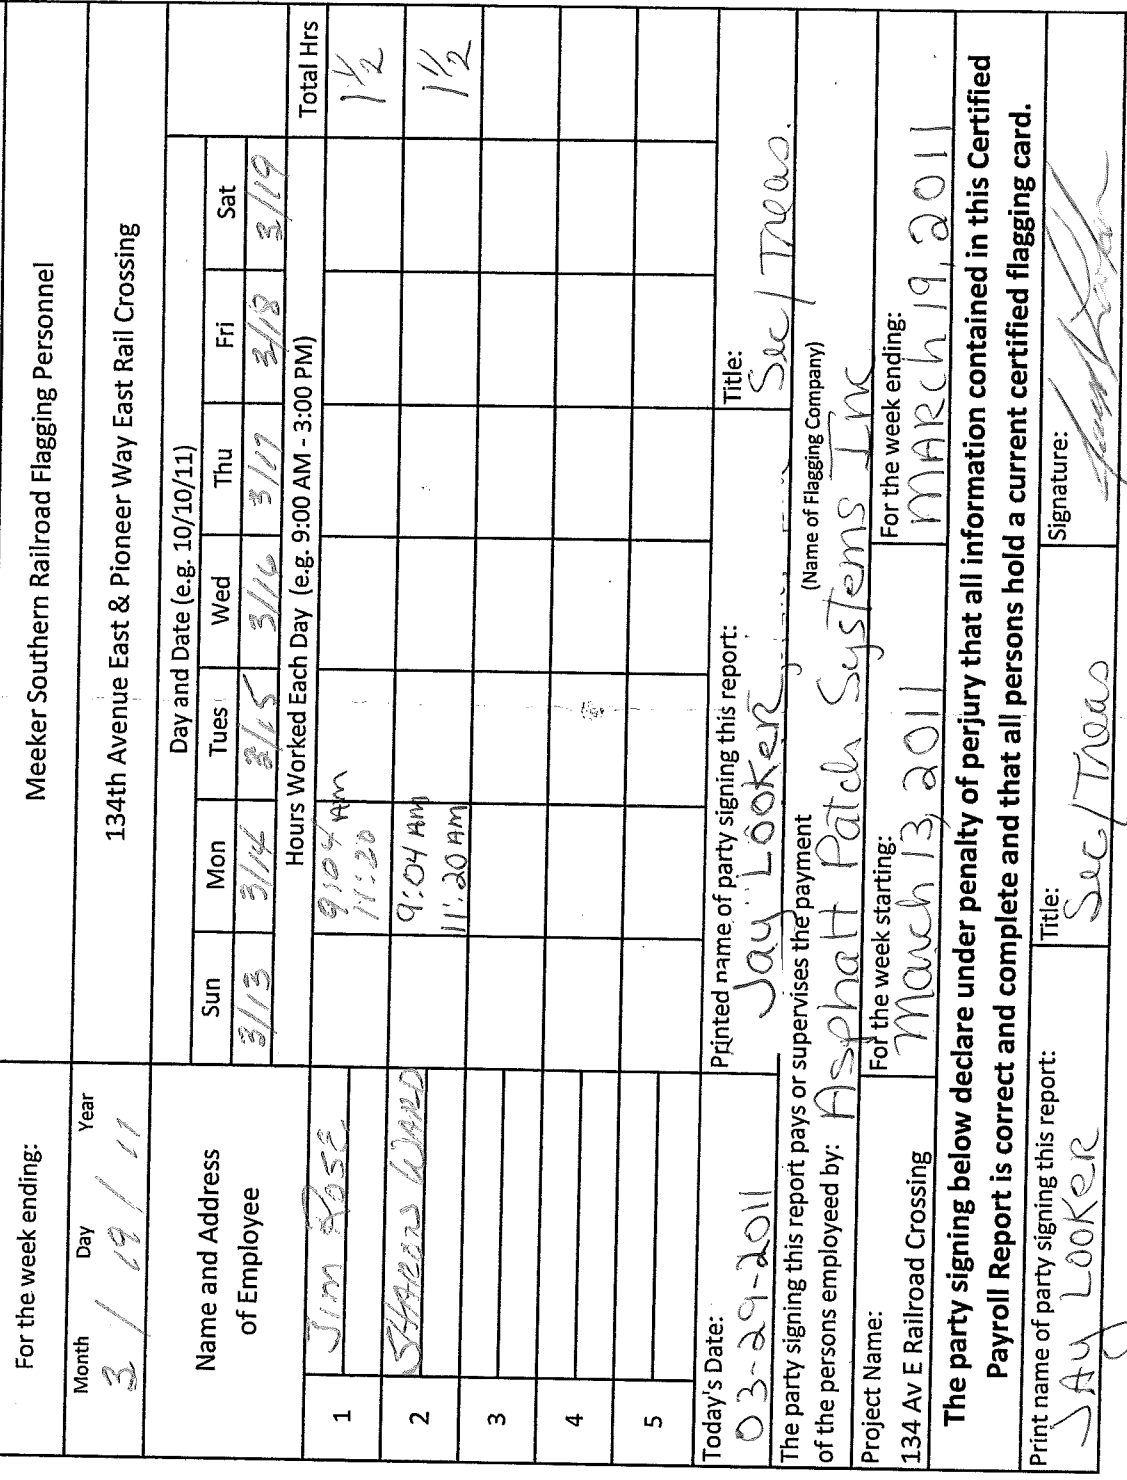 For the week ending:
Meeker Southern Railroad Flagging Personnel
Month Day Year
3 / 19 / 11
134th Avenue East & Pioneer Way East Rail Crossing
Name and Address
of Employee
Day and Date (e.g. 10/10/11)
Sun Mon Tues Wed Thu Fri Sat
3/13 3/14 3/15 3/16 3/17 3/18 3/19
Hours Worked Each Day (e.g. 9:00 AM - 3:00 PM)
Total Hrs
1 Jim Rose 9:04 AM 1 1/2
11:20
2 SHARON WARD 9:04 AM 1 1/2
11:20 AM
3
4
5
Today's Date:
03-29-2011
Printed name of party signing this report:
Jay Looker
Title:
Sec/Treas.
The party signing this report pays or supervises the payment
(Name of Flagging Company)
of the persons employeed by: Asphalt Patch Systems Inc
Project Name:
134 Av E Railroad Crossing
For the week starting:
March 13, 2011
For the week ending:
MARCh 19, 2011
The party signing below declare under penalty of perjury that all information contained in this Certified
Payroll Report is correct and complete and that all persons hold a current certified flagging card.
Print name of party signing this report:
JAy LOOKeR
Title:
Sec/Treas
Signature: